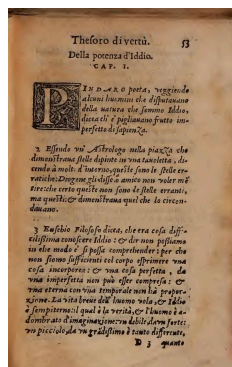 Thesoro di vertù. 53
Della potenza d'Iddio.
CAP. I.
PINDARO poeta, veggendo
alcuni huomini che disputauano
della natura che fanno Iddio,
dicea ch'è pigliauano frutto im-
perfetto di sapienza.
2 Essendo vn' Astrologo nella piazza che
dimostraua stelle dipinte in vna tauoletta, di-
cendo à molti d'intorno, queste sono le stelle er-
ratiche: Diogene gli disse, ò amico non voler mē
tire: che certo queste non sono le stelle erranti,
ma questi: & dimostraua quel che lo circon-
dauano.
3 Eusebio Filosofo dicea, che era cosa diffi-
cilissima conoscere Iddio: & dir non possiamo
in che modo è si possa comprehender: per che
non siamo sufficienti col corpo esprimere vna
cosa incorporea: & vna cosa perfetta, da
vna imperfetta non può esser compresa: &
vna eterna con vna temporale non hà propor-
zione. La vita breue dell'huomo vola, & Iddio
è sempiterno: il qual è la verità, & l'huomo è a-
dombrato d'imaginazione: vn debile, da vn forte:
vn picciolo, da vn grādissimo è tanto differente,
D 3 quanto